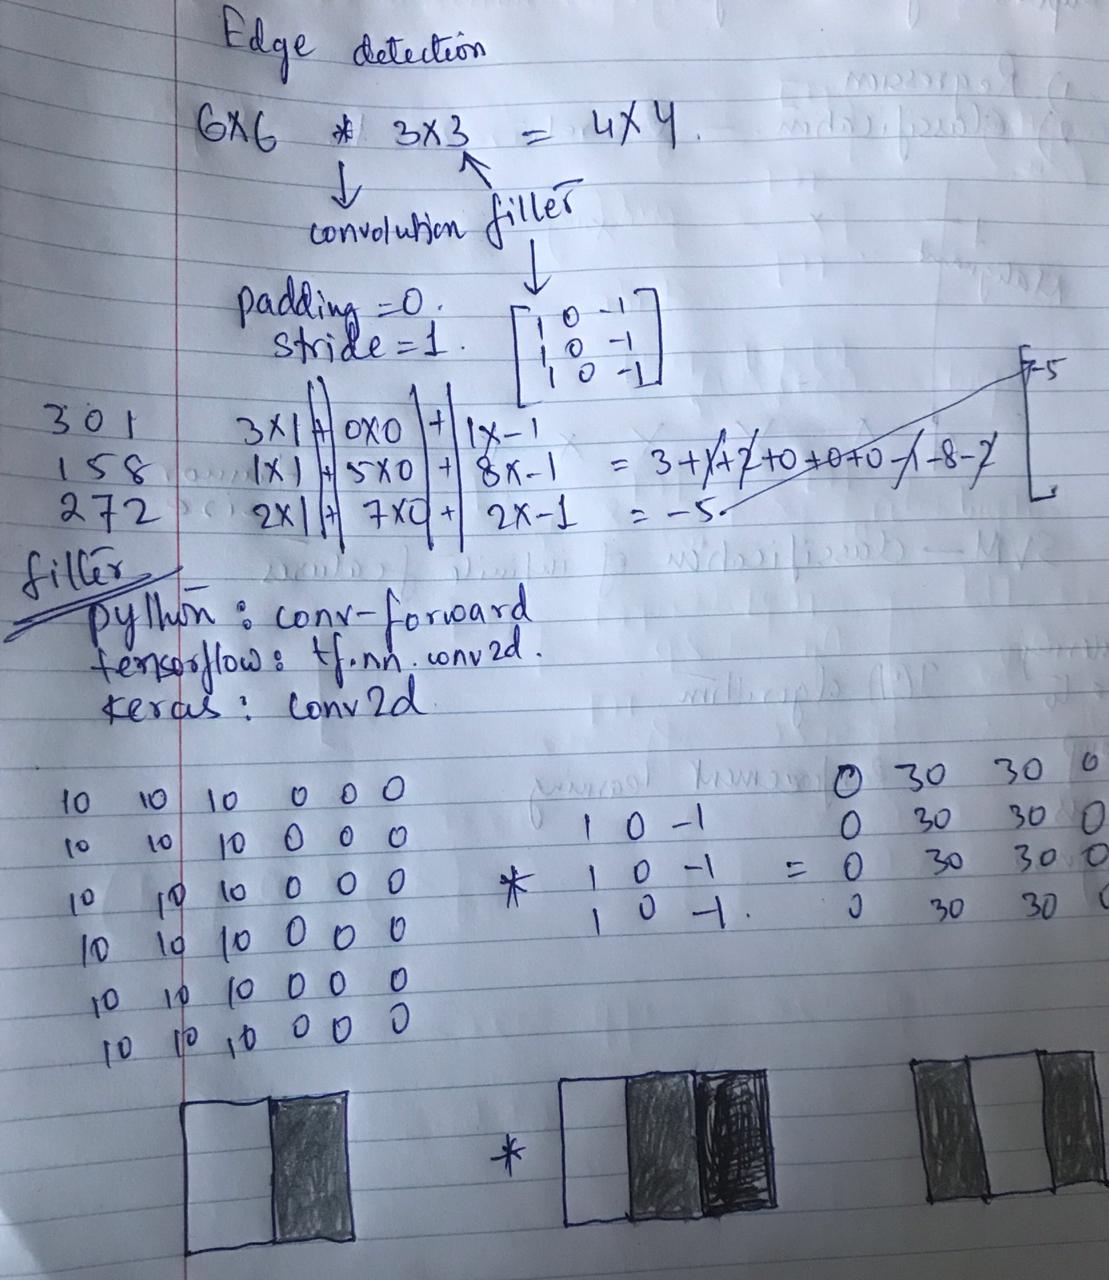 Edge detection
6x6 * 3x3 = 4x4.
convolution filter
padding = 0.
stride = 1.
1 0 -1
1 0 -1
1 0 -1
-5
3 0 1 3x1 + 0x0 + 1x-1
1 5 8 1x1 + 5x0 + 8x-1 = 3+1+2+0+0+0-1-8-2
2 7 2 2x1 + 7x0 + 2x-1 = -5
filter
python : conv-forward
tensorflow : tf.nn.conv2d.
keras : conv2d
10 10 10 0 0 0
10 10 10 0 0 0
10 10 10 0 0 0
10 10 10 0 0 0
10 10 10 0 0 0
10 10 10 0 0 0
*
1 0 -1
1 0 -1
1 0 -1.
=
0 30 30 0
0 30 30 0
0 30 30 0
0 30 30 0
*